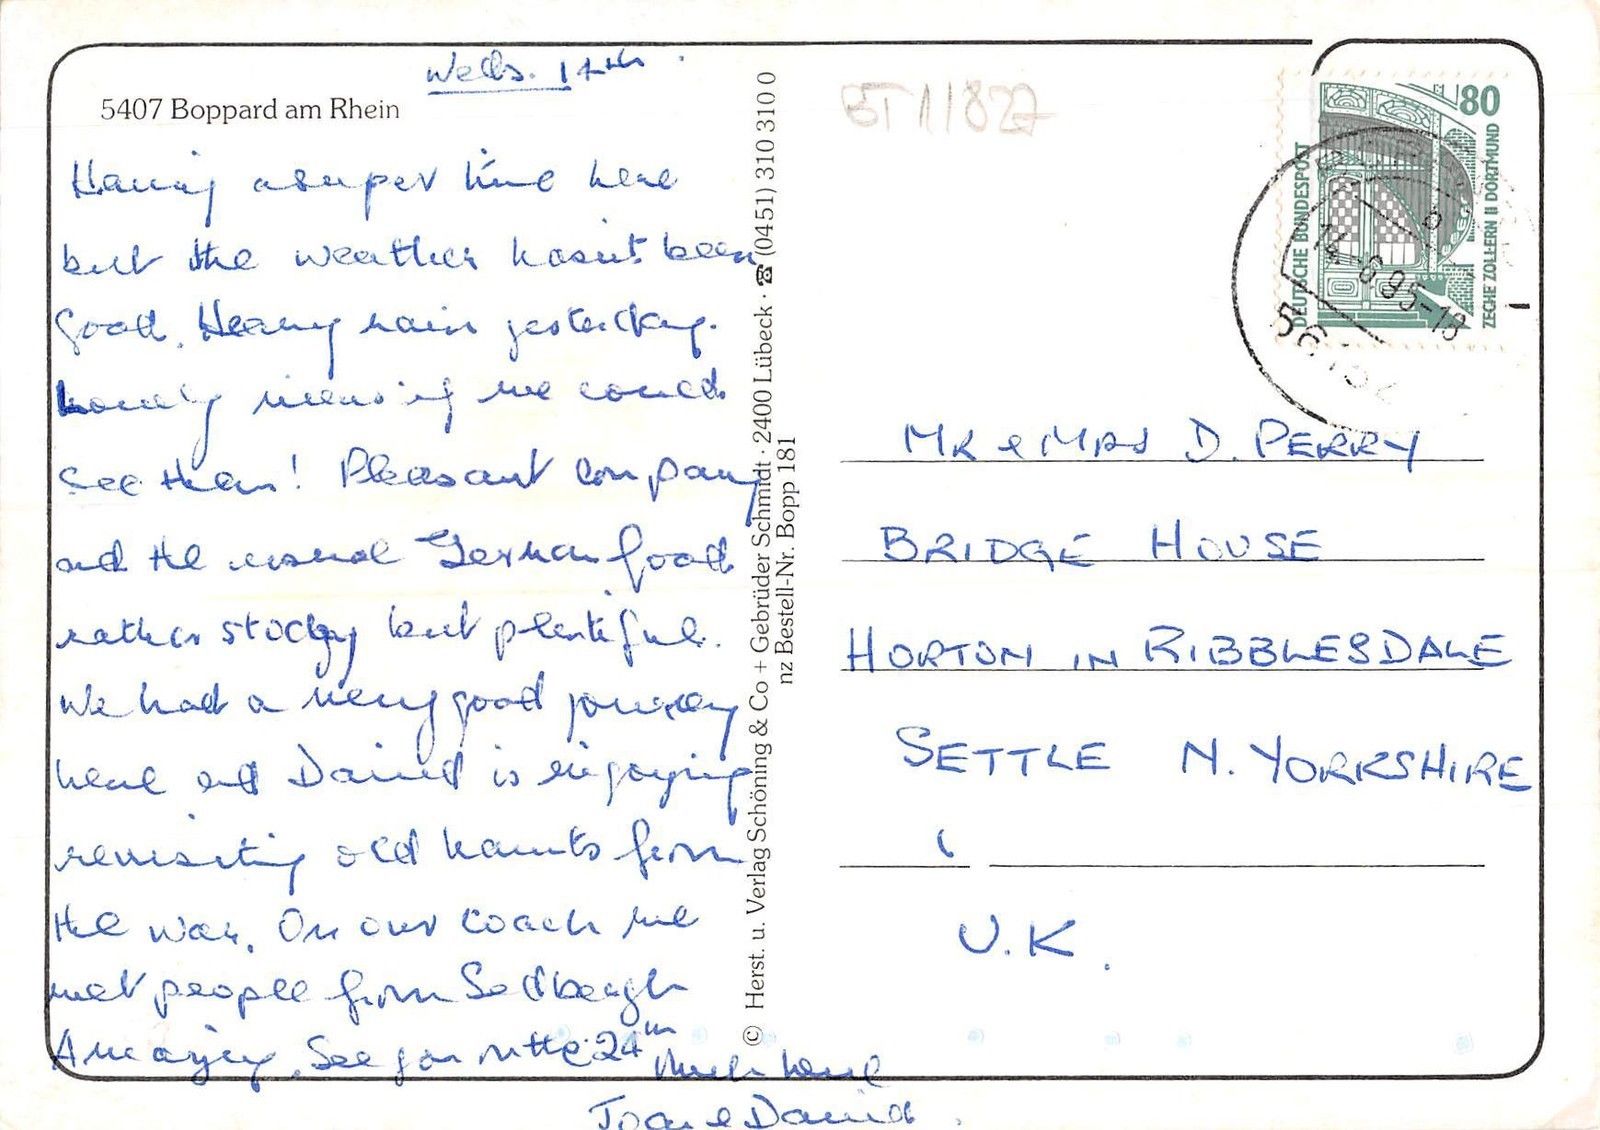 Weds. 14th.
5407 Boppard am Rhein
Having a super time here
but the weather hasn't been
good. Heavy rain yesterday.
Lovely views if we could
see them! Pleasant company
and the usual German food
rather stodgy but plentiful.
We had a very good journey
here and David is enjoying
revisiting old haunts from
the war. On our coach we
met people from Sedbergh
Amazing. See you on the 24th
Much love
Joan & David.
© Herst. u. Verlag Schöning & Co + Gebrüder Schmidt · 2400 Lübeck · ☎ (0451) 310 310 0
nz Bestell-Nr. Bopp 181
BT11827
80
DEUTSCHE BUNDESPOST
ZECHE ZOLLERN II DORTMUND
14.-6.95-18
56152
MR & MRS D. PERRY
BRIDGE HOUSE
HORTON IN RIBBLESDALE
SETTLE N. YORKSHIRE
U.K.